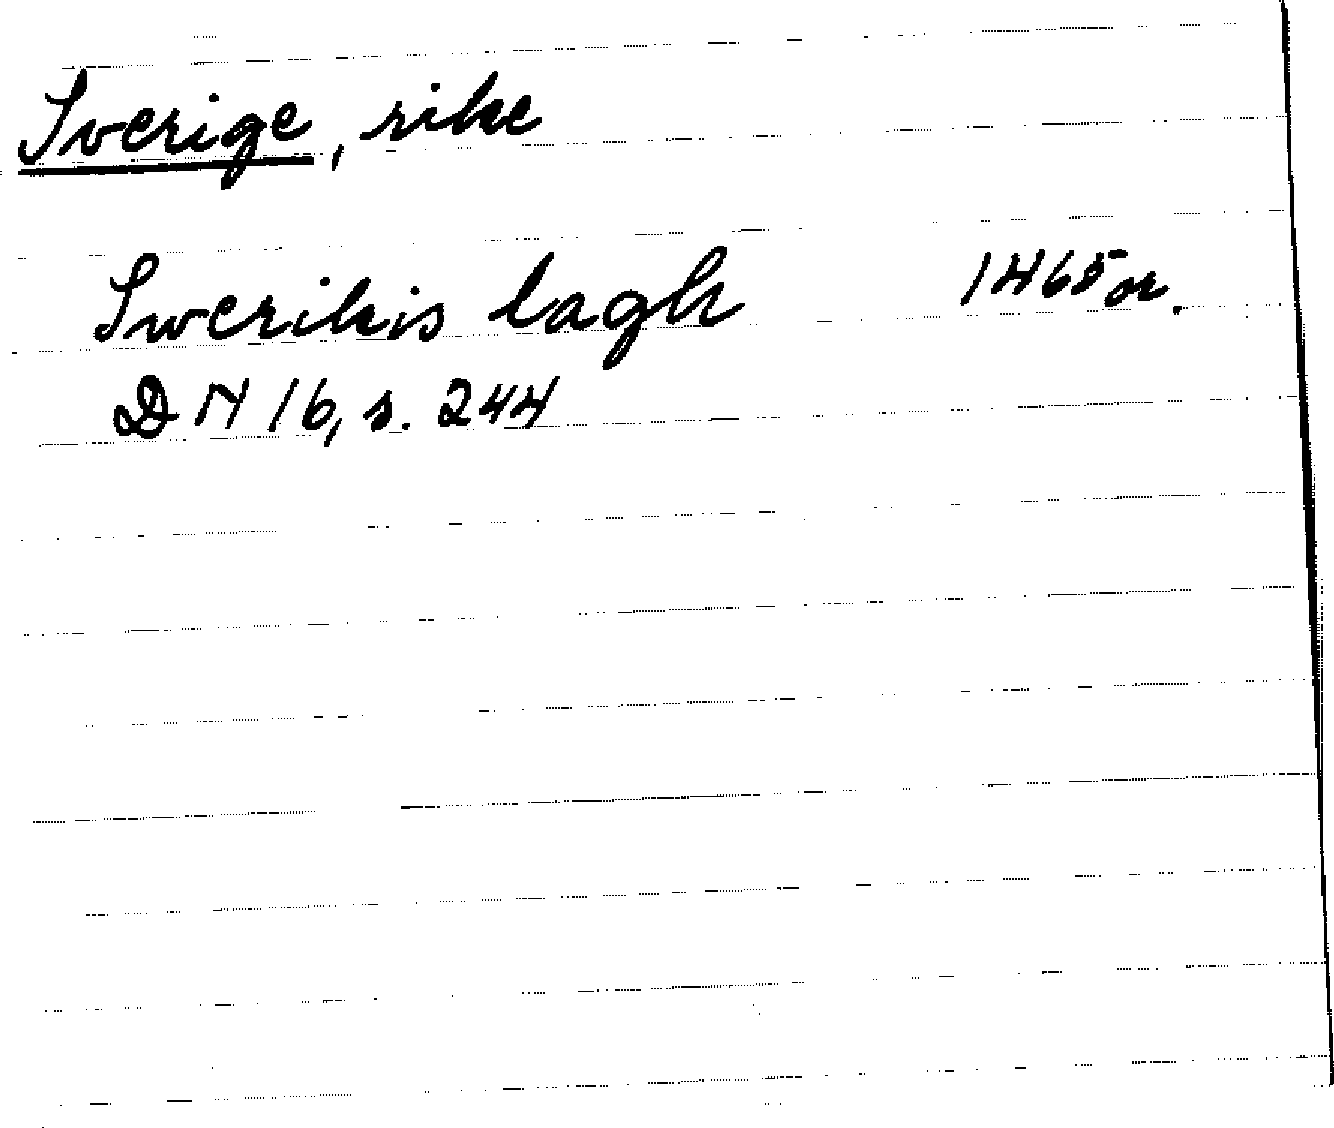 Sverige, rike
Swerikis lagh 1465 or.
DN 16, s. 244